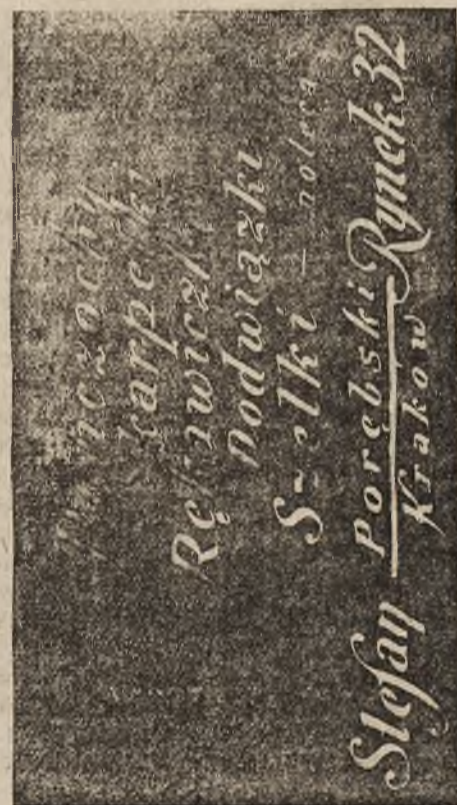 Pończochy
skarpetki
Rękawiczki
podwiązki
Szelki — poleca
Stefan Porębski Rynek 32
Kraków